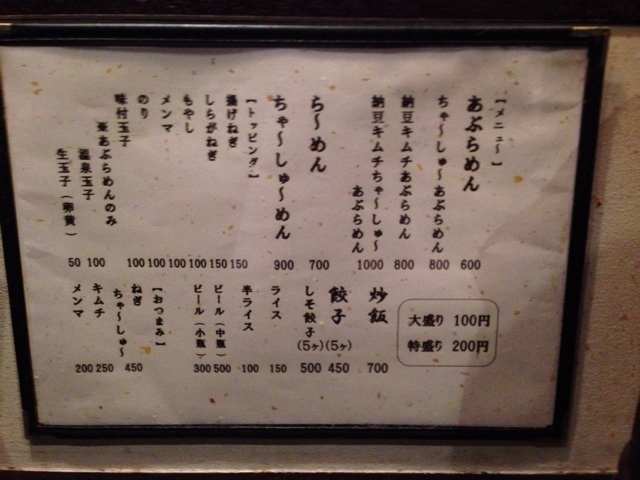 【メニュ〜】
あぶらめん 600
ちゃ〜しゅ〜あぶらめん 800
納豆キムチあぶらめん 800
納豆キムチちゃ〜しゅ〜
あぶらめん 1000
ら〜めん 700
ちゃ〜しゅ〜めん 900
【トッピング】
揚げねぎ 150
しらがねぎ 150
もやし 100
メンマ 100
のり 100
味付玉子 100
※あぶらめんのみ
温泉玉子 100
生玉子（卵黄） 50
大盛り 100円
特盛り 200円
炒飯 700
餃子（5ヶ） 450
しそ餃子（5ヶ） 500
ライス 150
半ライス 100
ビール（中瓶） 500
ビール（小瓶） 300
【おつまみ】
ねぎ
ちゃ〜しゅ〜 450
キムチ 250
メンマ 200